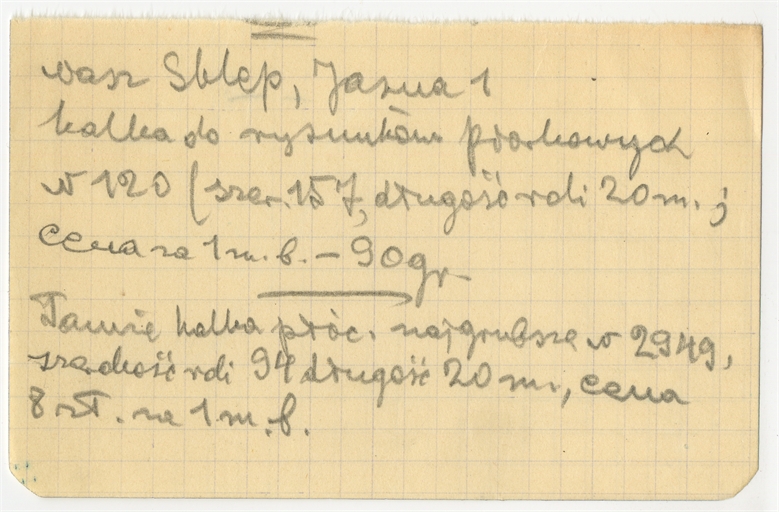 wasz Sklep, Jasna 1
kalka do rysunków piórkowych
N 120 (szer. 157, długość roli 20 m. ;
cena za 1 m. b. – 90 gr
Tamże kalka płóc. najgrubsza N 2949,
szerokość roli 94 długość 20 m., cena
8 zł. za 1 m. b.